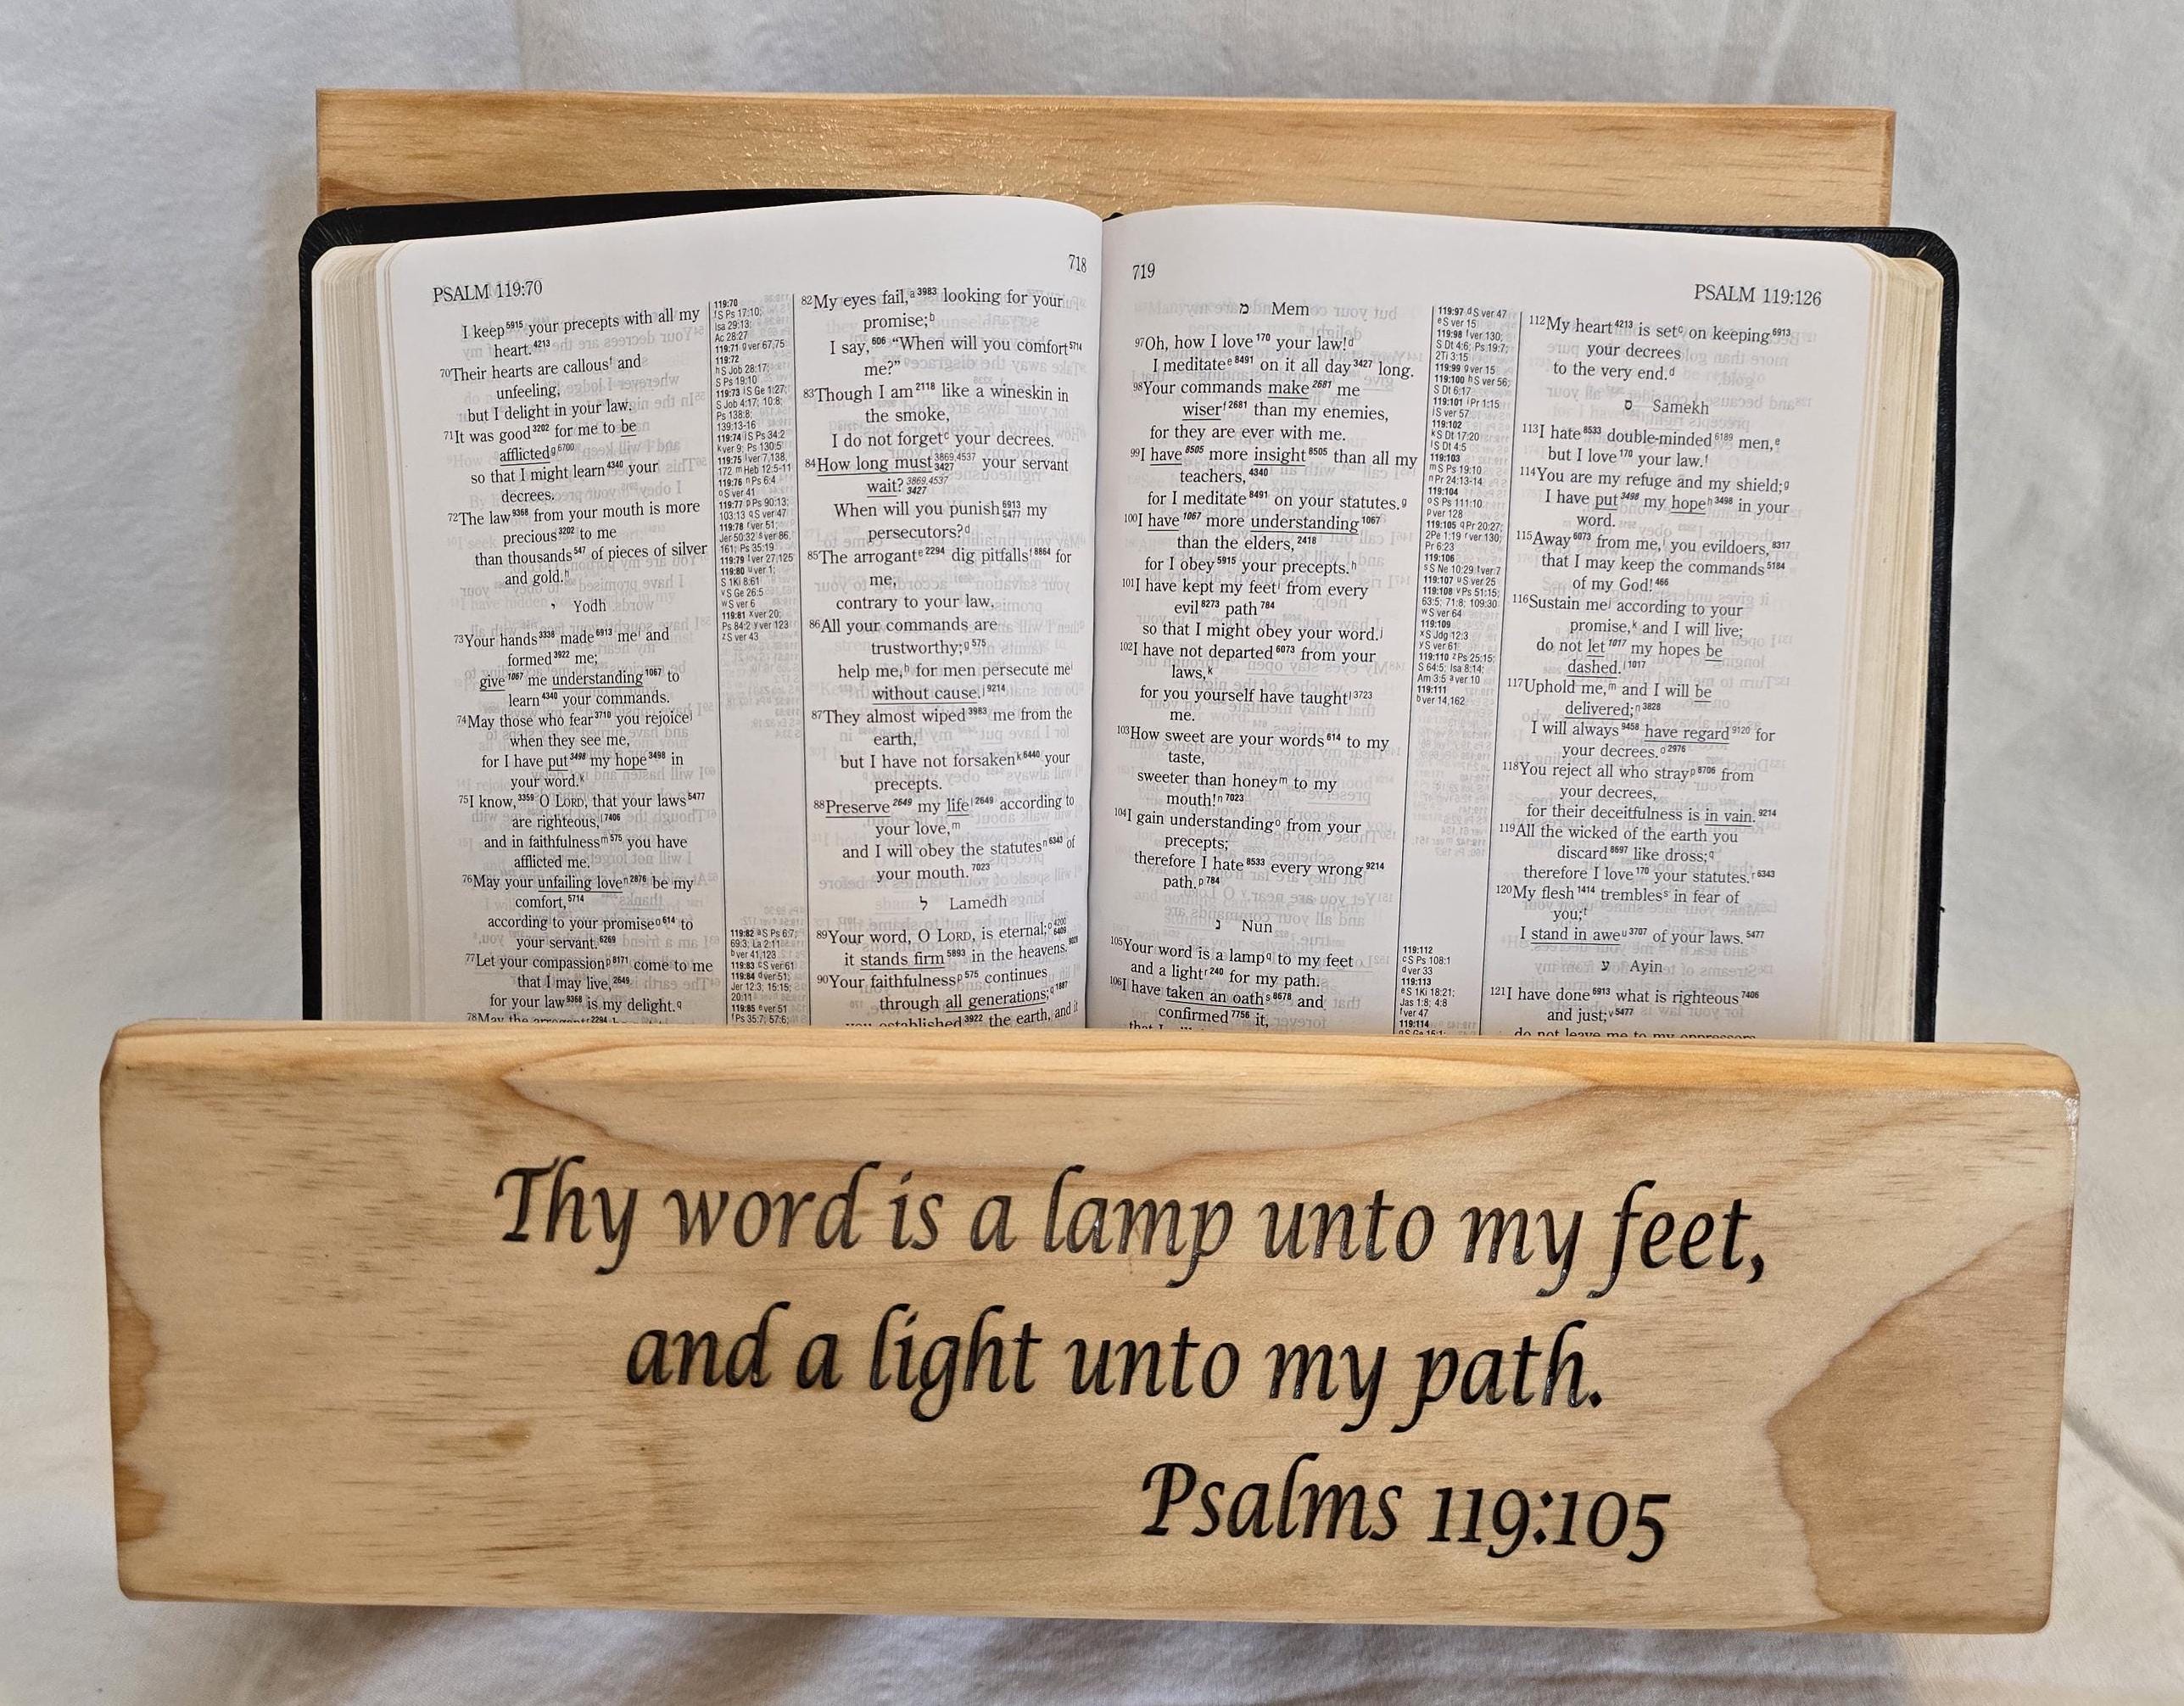 PSALM 119:70
718
I keep⁵⁹¹⁵ your precepts with all my
heart.⁴²¹³
⁷⁰Their hearts are callousᶠ and
unfeeling,
but I delight in your law.
⁷¹It was good³²⁰² for me to be
afflictedᵍ⁶⁷⁰⁰
so that I might learn⁴³⁴⁰ your
decrees.
⁷²The law⁹³⁶⁸ from your mouth is more
precious³²⁰² to me
than thousands⁵⁴⁷ of pieces of silver
and gold.ʰ
י Yodh
⁷³Your hands³³³⁸ made⁶⁹¹³ meⁱ and
formed³⁹²² me;
give¹⁰⁶⁷ me understanding¹⁰⁶⁷ to
learn⁴³⁴⁰ your commands.
⁷⁴May those who fear³⁷¹⁰ you rejoiceʲ
when they see me,
for I have put³⁴⁹⁸ my hope³⁴⁹⁸ in
your word.ᵏ
⁷⁵I know,³³⁵⁹ O LORD, that your laws⁵⁴⁷⁷
are righteous,ˡ⁷⁴⁰⁶
and in faithfulnessᵐ⁵⁷⁵ you have
afflicted me.
⁷⁶May your unfailing loveⁿ²⁸⁷⁶ be my
comfort,⁵⁷¹⁴
according to your promiseᵒ⁶¹⁴ to
your servant.⁶²⁶⁹
⁷⁷Let your compassionᵖ⁸¹⁷¹ come to me
that I may live,²⁶⁴⁹
for your law⁹³⁶⁸ is my delight.q
⁷⁸May the arrogant²²⁹⁴
119:70
ᶠS Ps 17:10;
Isa 29:13;
Ac 28:27
119:71 ᵍver 67,75
119:72
ʰS Job 28:17;
S Ps 19:10
119:73 ⁱS Ge 1:27;
S Job 4:17; 10:8;
Ps 138:8;
139:13-16
119:74 ʲS Ps 34:2
ᵏver 9; Ps 130:5
119:75 ˡver 7,138,
172 ᵐHeb 12:5-11
119:76 ⁿPs 6:4
ᵒS ver 41
119:77 ᵖPs 90:13;
103:13 qS ver 47
119:78 ʳver 51;
Jer 50:32 ˢver 86,
161; Ps 35:19
119:79 ᵗver 27,125
119:80 ᵘver 1;
S 1Ki 8:61
ᵛS Ge 26:5
ʷS ver 6
119:81 ˣver 20;
Ps 84:2 ʸver 123
ᶻS ver 43
119:82 ᵃS Ps 6:7;
69:3; La 2:11
ᵇver 41,123
119:83 ᶜS ver 61
119:84 ᵈver 51;
Jer 12:3; 15:15;
20:11
119:85 ᵉver 51
ᶠPs 35:7; 57:6;
⁸²My eyes fail,ᵃ³⁹⁸³ looking for your
promise;ᵇ
I say,⁶⁰⁶ “When will you comfort⁵⁷¹⁴
me?”
⁸³Though I am²¹¹⁸ like a wineskin in
the smoke,
I do not forgetᶜ your decrees.
⁸⁴How long must³⁸⁶⁹,⁴⁵³⁷ ³⁴²⁷ your servant
wait?³⁸⁶⁹,⁴⁵³⁷ ³⁴²⁷
When will you punish⁶⁹¹³ ⁵⁴⁷⁷ my
persecutors?ᵈ
⁸⁵The arrogantᵉ²²⁹⁴ dig pitfallsᶠ⁸⁸⁶⁴ for
me,
contrary to your law.
⁸⁶All your commands are
trustworthy;ᵍ⁵⁷⁵
help me,ʰ for men persecute meⁱ
without cause.ʲ⁹²¹⁴
⁸⁷They almost wiped³⁹⁸³ me from the
earth,
but I have not forsakenᵏ⁶⁴⁴⁰ your
precepts.
⁸⁸Preserve²⁶⁴⁹ my lifeˡ²⁶⁴⁹ according to
your love,ᵐ
and I will obey the statutesⁿ⁶³⁴³ of
your mouth.⁷⁰²³
ל Lamedh
⁸⁹Your word, O LORD, is eternal;ᵒ⁴²⁰⁰ ⁶⁴⁰⁹
it stands firm⁵⁸⁹³ in the heavens.⁹⁰²⁸
⁹⁰Your faithfulnessᵖ⁵⁷⁵ continues
through all generations;q¹⁸⁸⁷
you established³⁹²² the earth, and it
719
PSALM 119:126
מ Mem
⁹⁷Oh, how I love¹⁷⁰ your law!ᵈ
I meditateᵉ⁸⁴⁹¹ on it all day³⁴²⁷ long.
⁹⁸Your commands make²⁶⁸¹ me
wiserᶠ²⁶⁸¹ than my enemies,
for they are ever with me.
⁹⁹I have⁸⁵⁰⁵ more insight⁸⁵⁰⁵ than all my
teachers,⁴³⁴⁰
for I meditate⁸⁴⁹¹ on your statutes.ᵍ
¹⁰⁰I have¹⁰⁶⁷ more understanding¹⁰⁶⁷
than the elders,²⁴¹⁸
for I obey⁵⁹¹⁵ your precepts.ʰ
¹⁰¹I have kept my feetⁱ from every
evil⁸²⁷³ path⁷⁸⁴
so that I might obey your word.ʲ
¹⁰²I have not departed⁶⁰⁷³ from your
laws,ᵏ
for you yourself have taughtˡ³⁷²³
me.
¹⁰³How sweet are your words⁶¹⁴ to my
taste,
sweeter than honeyᵐ to my
mouth!ⁿ⁷⁰²³
¹⁰⁴I gain understandingᵒ from your
precepts;
therefore I hate⁸⁵³³ every wrong⁹²¹⁴
path.ᵖ⁷⁸⁴
נ Nun
¹⁰⁵Your word is a lampq to my feet
and a lightʳ²⁴⁰ for my path.
¹⁰⁶I have taken an oathˢ⁸⁶⁷⁸ and
confirmed⁷⁷⁵⁶ it,
119:97 ᵈS ver 47
ᵉS ver 15
119:98 ᶠver 130;
S Dt 4:6; Ps 19:7;
2Ti 3:15
119:99 ᵍver 15
119:100 ʰS ver 56;
S Dt 6:17
119:101 ⁱPr 1:15
ʲS ver 57
119:102
ᵏS Dt 17:20
ˡS Dt 4:5
119:103
ᵐS Ps 19:10
ⁿPr 24:13-14
119:104
ᵒS Ps 111:10
ᵖver 128
119:105 qPr 20:27;
2Pe 1:19 ʳver 130;
Pr 6:23
119:106
ˢS Ne 10:29 ᵗver 7
119:107 ᵘS ver 25
119:108 ᵛPs 51:15;
63:5; 71:8; 109:30
ʷS ver 64
119:109
ˣS Jdg 12:3
ʸS ver 61
119:110 ᶻPs 25:15;
S 64:5; Isa 8:14;
Am 3:5 ᵃver 10
119:111
ᵇver 14,162
119:112
ᶜS Ps 108:1
ᵈver 33
119:113
ᵉS 1Ki 18:21;
Jas 1:8; 4:8
ᶠver 47
119:114
ᵍS Ge 15:1;
¹¹²My heart⁴²¹³ is setᶜ on keeping⁶⁹¹³
your decrees
to the very end.ᵈ
ס Samekh
¹¹³I hate⁸⁵³³ double-minded⁶¹⁸⁹ men,ᵉ
but I love¹⁷⁰ your law.ᶠ
¹¹⁴You are my refuge and my shield;ᵍ
I have put³⁴⁹⁸ my hopeʰ³⁴⁹⁸ in your
word.
¹¹⁵Away⁶⁰⁷³ from me,ⁱ you evildoers,⁸³¹⁷
that I may keep the commands⁵¹⁸⁴
of my God!⁴⁶⁶
¹¹⁶Sustain meʲ according to your
promise,ᵏ and I will live;
do not let¹⁰¹⁷ my hopes be
dashed.ˡ¹⁰¹⁷
¹¹⁷Uphold me,ᵐ and I will be
delivered;ⁿ³⁸²⁸
I will always⁹⁴⁵⁸ have regard⁹¹²⁰ for
your decrees.ᵒ²⁹⁷⁶
¹¹⁸You reject all who strayᵖ⁸⁷⁰⁶ from
your decrees,
for their deceitfulness is in vain.⁹²¹⁴
¹¹⁹All the wicked of the earth you
discard⁸⁶⁹⁷ like dross;q
therefore I love¹⁷⁰ your statutes.ʳ⁶³⁴³
¹²⁰My flesh¹⁴¹⁴ tremblesˢ in fear of
you;ᵗ
I stand in aweᵘ³⁷⁰⁷ of your laws.⁵⁴⁷⁷
ע Ayin
¹²¹I have done⁶⁹¹³ what is righteous⁷⁴⁰⁶
and just;ᵛ⁵⁴⁷⁷
do not leave me to my oppressors.
Thy word is a lamp unto my feet,
and a light unto my path.
Psalms 119:105